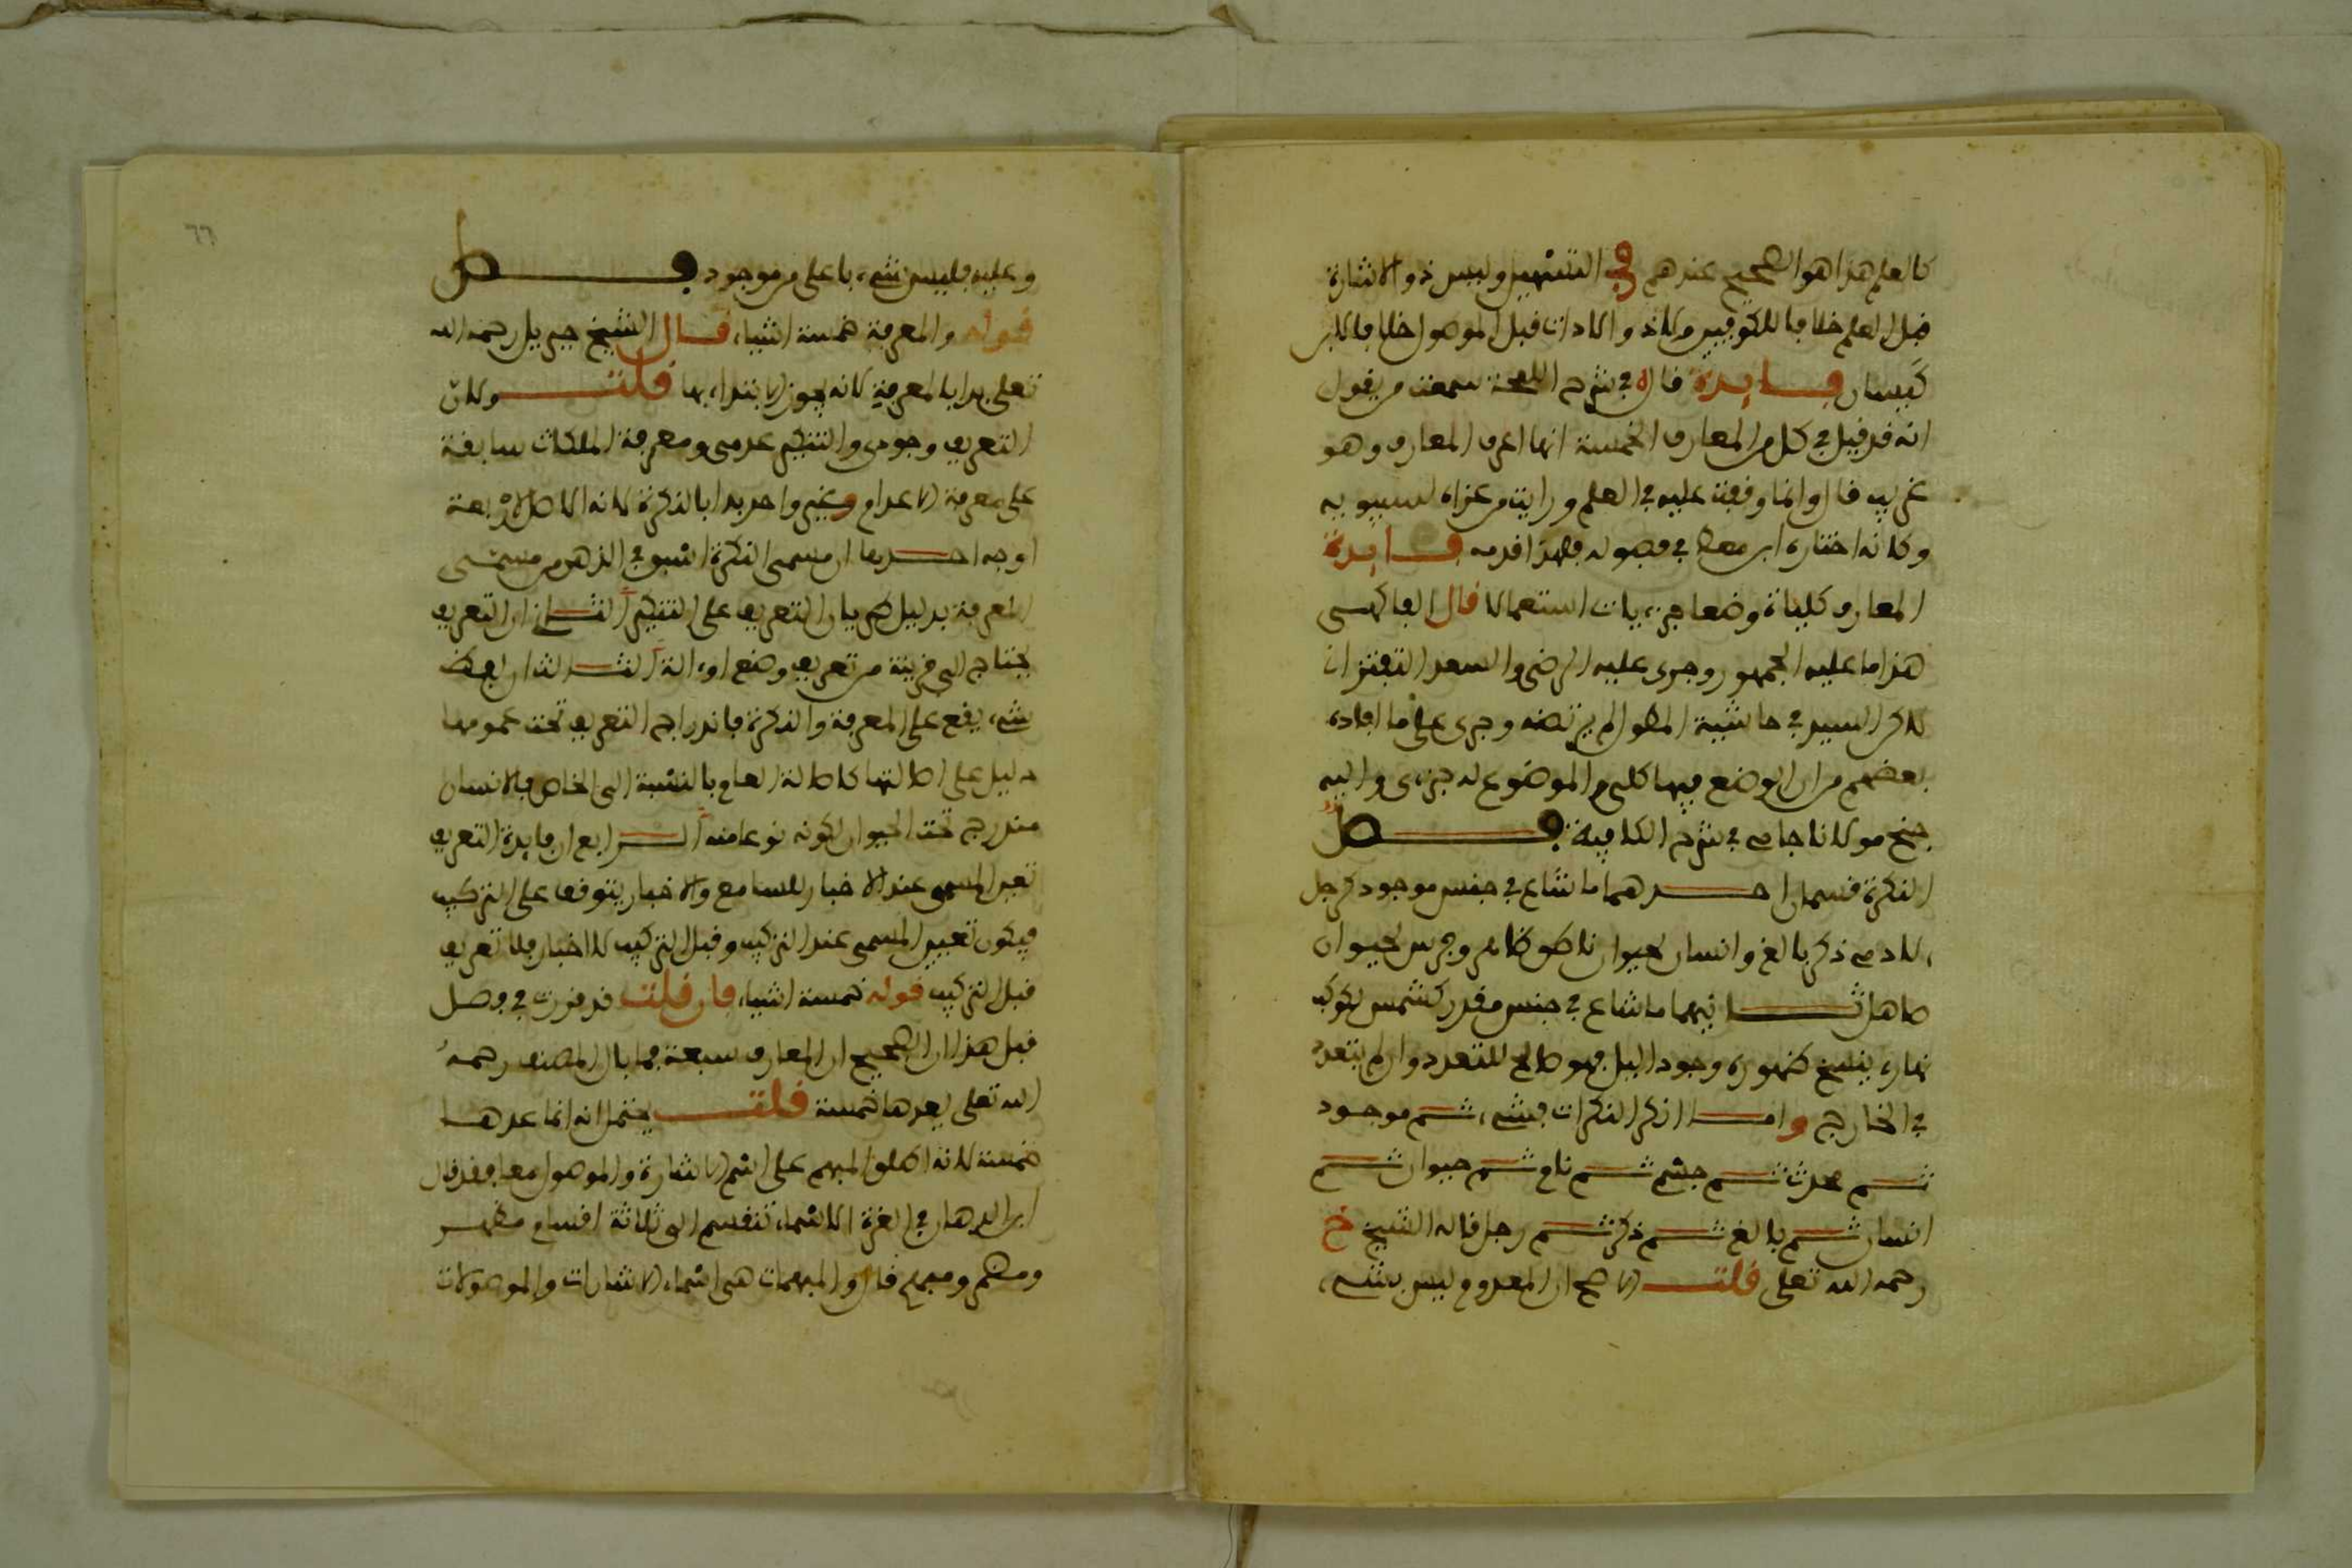 كالعلم هذا هو الصحيح عندهم وفي التسهيل وليس ذو الاشارة
قبل العلم خلافا للكوفيين ولا ذو الاداة قبل الموصول خلافا لابن
كيسان فايدة قال في شرح اللمحة سمعت من يقول
انه قد قيل في كل من المعارف الخمسة انها اعرف المعارف وهو
غريب قال وانما وقفت عليه في العلم ورايته من عزاه لسيبويه
وكانه اختاره ابن معط في فصوله فلهذا قدمه فايدة
المعارف كليات وضعا جزءيات استعمالا قال الفاكهي
هذا ما عليه الجمهور وجرى عليه الرضي والسعد التفتزاني
لاكن السيد في حاشية المطول لم يرتضه وجرى على ما افاده
بعضهم من ان الوضع فيها كلي والموضوع له جزءي واليه
جنح مولانا جامي في شرح الكافية فصل
النكرة قسمان احدهما ما شاع في جنس موجود كرجل
لادمي ذكر بالغ وانسان لحيوان ناطق كامل وفرس لحيوان
صاهل ثانيهما ما شاع في جنس مقدر كشمس لكوكب
نهاري ينسخ ظهوره وجود اليل فهو صالح للتعدد وان لم يتعدد
في الخارج واما انكر النكرات فشيء ثم موجود
ثم محدث ثم جسم ثم نام ثم حيوان ثم
انسان ثم بالغ ثم ذكر ثم رجل قاله الشيخ خ
رحمه الله تعلى قلت الاصح ان المعدوم ليس بشيء
وعليه فليس شيء باعلى من موجود فصل
قوله والمعرفة خمسة اشياء قال الشيخ جبريل رحمه الله
تعلى بدا بالمعرفة لانه يجوز الابتداء بها قلت ولان
التعريف وجودي والتنكير عدمي ومعرفة الملكات سابقة
على معرفة الاعدام وغير واحد بدا بالنكرة لانه الاصل لاربعة
اوجه احدها ان مسمى النكرة اسبق في الذهن من مسمى
المعرفة بدليل طريان التعريف على التنكير الثاني ان التعريف
يحتاج الى قرينة من تعريف وضع او ءالة الثالث ان لفظ
شيء يقع على المعرفة والنكرة فاندراج التعريف تحت عمومها
دليل على اصالتها كاصالة العام بالنسبة الى الخاص فالانسان
مندرج تحت الحيوان لكونه نوعا منه الرابع ان فايدة التعريف
تعيين المسمى عند الاخبار للسامع والاخبار يتوقف على التركيب
فيكون تعيين المسمى عند التركيب وقبل التركيب لا اخبار فلا تعريف
قبل التركيب قوله خمسة اشياء فان قلت قد قررت في فصل
قبل هذا ان الصحيح ان المعارف سبعة فما بال المصنف رحمه
الله تعلى يعدها خمسة قلت يحتمل انه انما عدها
خمسة لانه اطلق المبهم على اسم الاشارة والموصول معا فقد قال
ابن الدهان في الغرة الاسماء تنقسم الى ثلاثة اقسام مظهر
ومضمر ومبهم قال والمبهمات هي اسماء الاشارات والموصولات
٦٦